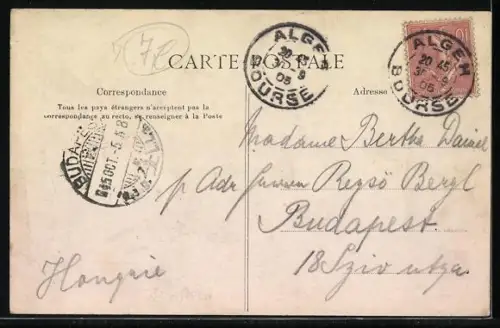 T.70
CARTE POSTALE
Correspondance
Adresse
Tous les pays étrangers n'acceptent pas la
correspondance au recto, se renseigner à la Poste
ALGER
20 45
30 9
05
BOURSE
ALGER
20 45
30 9
05
BOURSE
10
BUDAPEST
905 OCT. 5
Madame Bertha Daniel
p Adr Herren Regsö Bergl
Budapest
18 Sziv utcza.
Hongrie